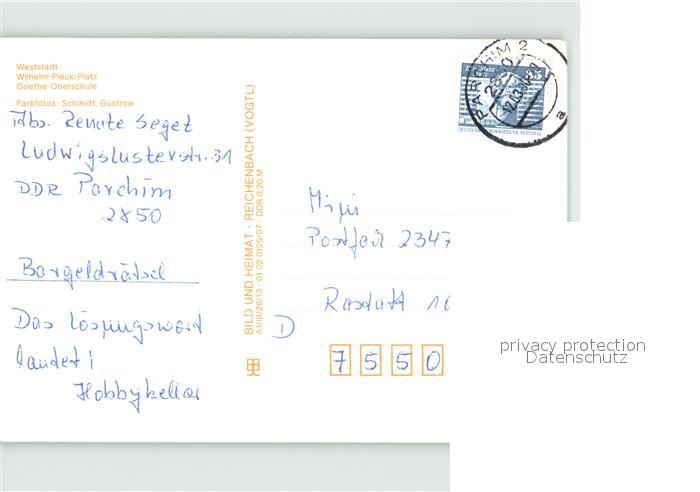 Weststadt
Wilhelm-Pieck-Platz
Goethe-Oberschule
Farbfotos: Schmidt, Güstrow
Abs. Renate Seget
Ludwigslusterstr. 31
DDR Parchim
2850
Bargeldrätsel
Das Lösungswort
lautet:
Hobbykeller
BILD UND HEIMAT · REICHENBACH (VOGTL)
A1/III/26/13 · 01 02 0125/07 · DDR 0,20 M
PARCHIM 2
2850
a
35
DEUTSCHE DEMOKRATISCHE REPUBLIK
Postfach 2347
Rastatt
D
7 5 5 0
privacy protection
Datenschutz